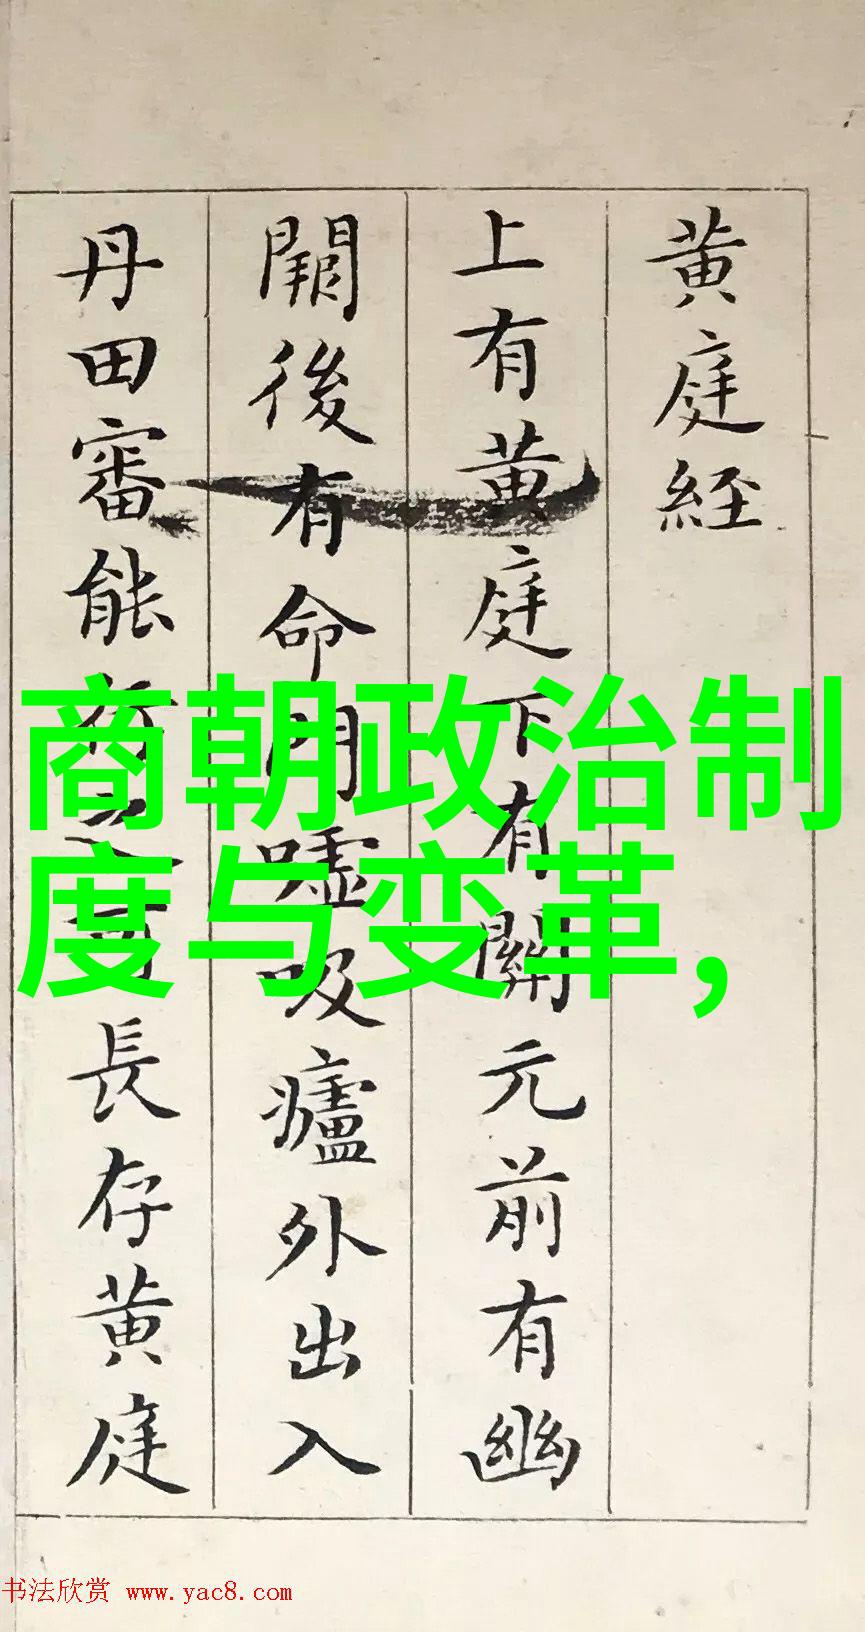 黄庭経
上有黄庭下有關元前有幽
闕後有命門嘘吸廬外出入
丹田審能行之可長存黄庭
商朝政治制
度与变革，
书法欣赏 www.yac8.com